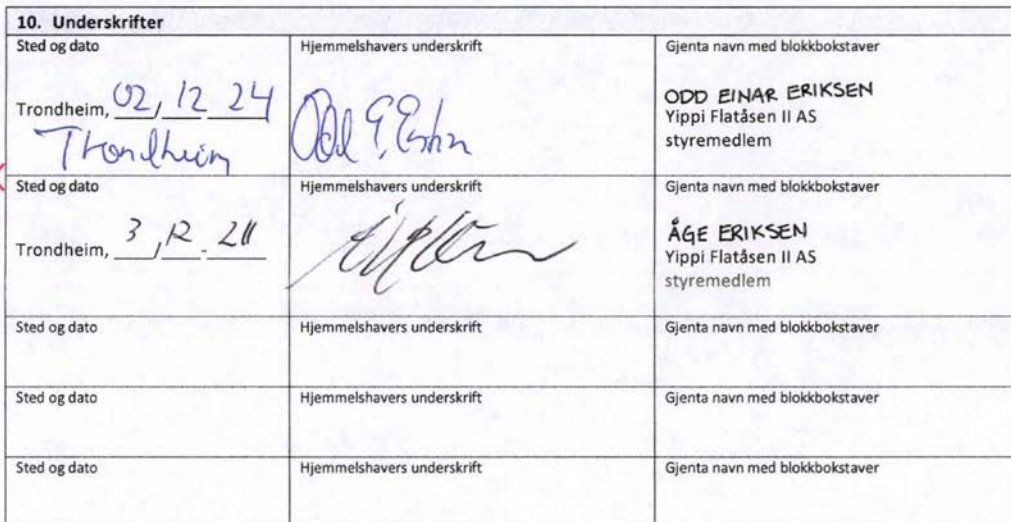 10. Underskrifter
Sted og dato Hjemmelshavers underskrift Gjenta navn med blokkbokstaver
Trondheim, 02/12 24 ODD EINAR ERIKSEN
Yippi Flatåsen II AS
Trondheim styremedlem
Sted og dato Hjemmelshavers underskrift Gjenta navn med blokkbokstaver
Trondheim, 3/12 - ÅGE ERIKSEN
Yippi Flatåsen II AS
styremedlem
Sted og dato Hjemmelshavers underskrift Gjenta navn med blokkbokstaver
Sted og dato Hjemmelshavers underskrift Gjenta navn med blokkbokstaver
Sted og dato Hjemmelshavers underskrift Gjenta navn med blokkbokstaver